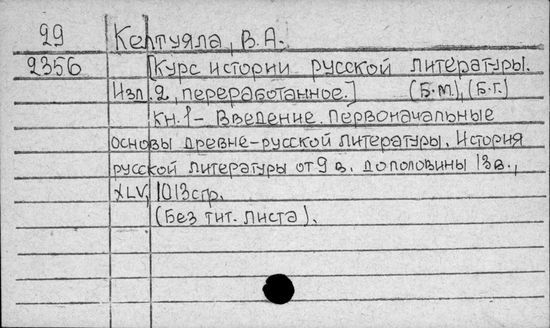 29 Келтуяла, В.А.
2356 [Курс истории русской литературы.
Изд. 2, переработанное.] (Б.М.), (Б.Г.)
Кн. 1 - Введение. Первоначальные
основы древне-русской литературы. История
русской литературы от 9 в. до половины 13 в.,
XLV, 1013 стр.
(Без тит. листа).